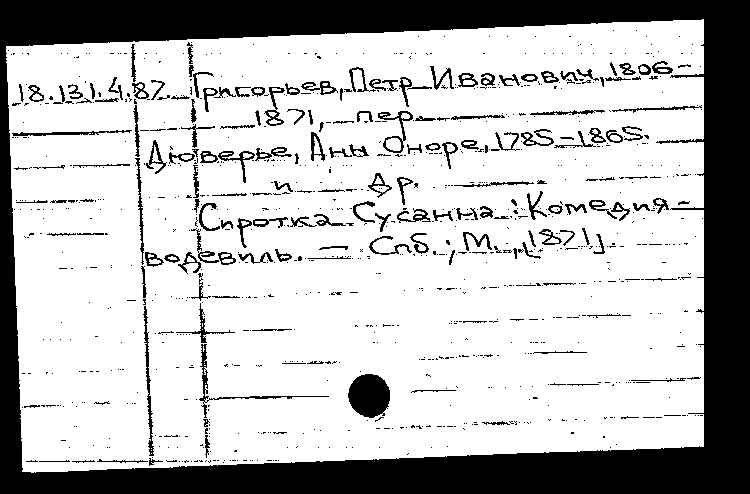 18.131.4.87. Григорьев, Петр Иванович, 1806-
1871, пер.
Дюверье, Аны Оноре, 1785-1865.
и др.
Сиротка Сусанна: Комедия-
водевиль. — Спб.; М., [1871].